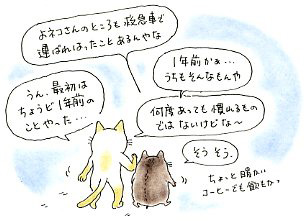 よネコさんのところも救急車で
運ばれはったことあるんやな
うん、最初は
ちょうど1年前の
ことやった…
1年前かぁ…
うちもそんなもんや
何度あっても慣れるもの
ではないけどな〜
そうそう。
ちょっと暖かい
コーヒーでも飲もか?